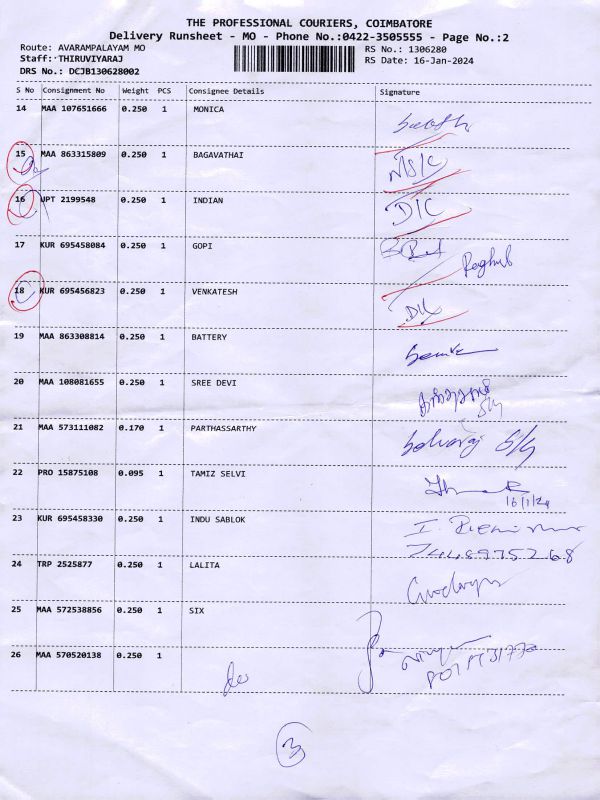 THE PROFESSIONAL COURIERS, COIMBATORE
Delivery Runsheet - MO - Phone No.:0422-3505555 - Page No.:2
Route: AVARAMPALAYAM MO RS No.: 1306280
Staff: THIRUVIYARAJ RS Date: 16-Jan-2024
DRS No.: DCJB130628002
S No Consignment No Weight PCS Consignee Details Signature
14 MAA 107651666 0.250 1 MONICA
15 MAA 863315809 0.250 1 BAGAVATHAI
16 UPT 2199548 0.250 1 INDIAN D/C
17 KUR 695458084 0.250 1 GOPI
18 KUR 695456823 0.250 1 VENKATESH
19 MAA 863308814 0.250 1 BATTERY
20 MAA 108081655 0.250 1 SREE DEVI
21 MAA 573111082 0.170 1 PARTHASSARTHY
22 PRO 15875108 0.095 1 TAMIZ SELVI
16/1/24
23 KUR 695458330 0.250 1 INDU SABLOK
24 TRP 2525877 0.250 1 LALITA
25 MAA 572538856 0.250 1 SIX
26 MAA 570520138 0.250 1
3